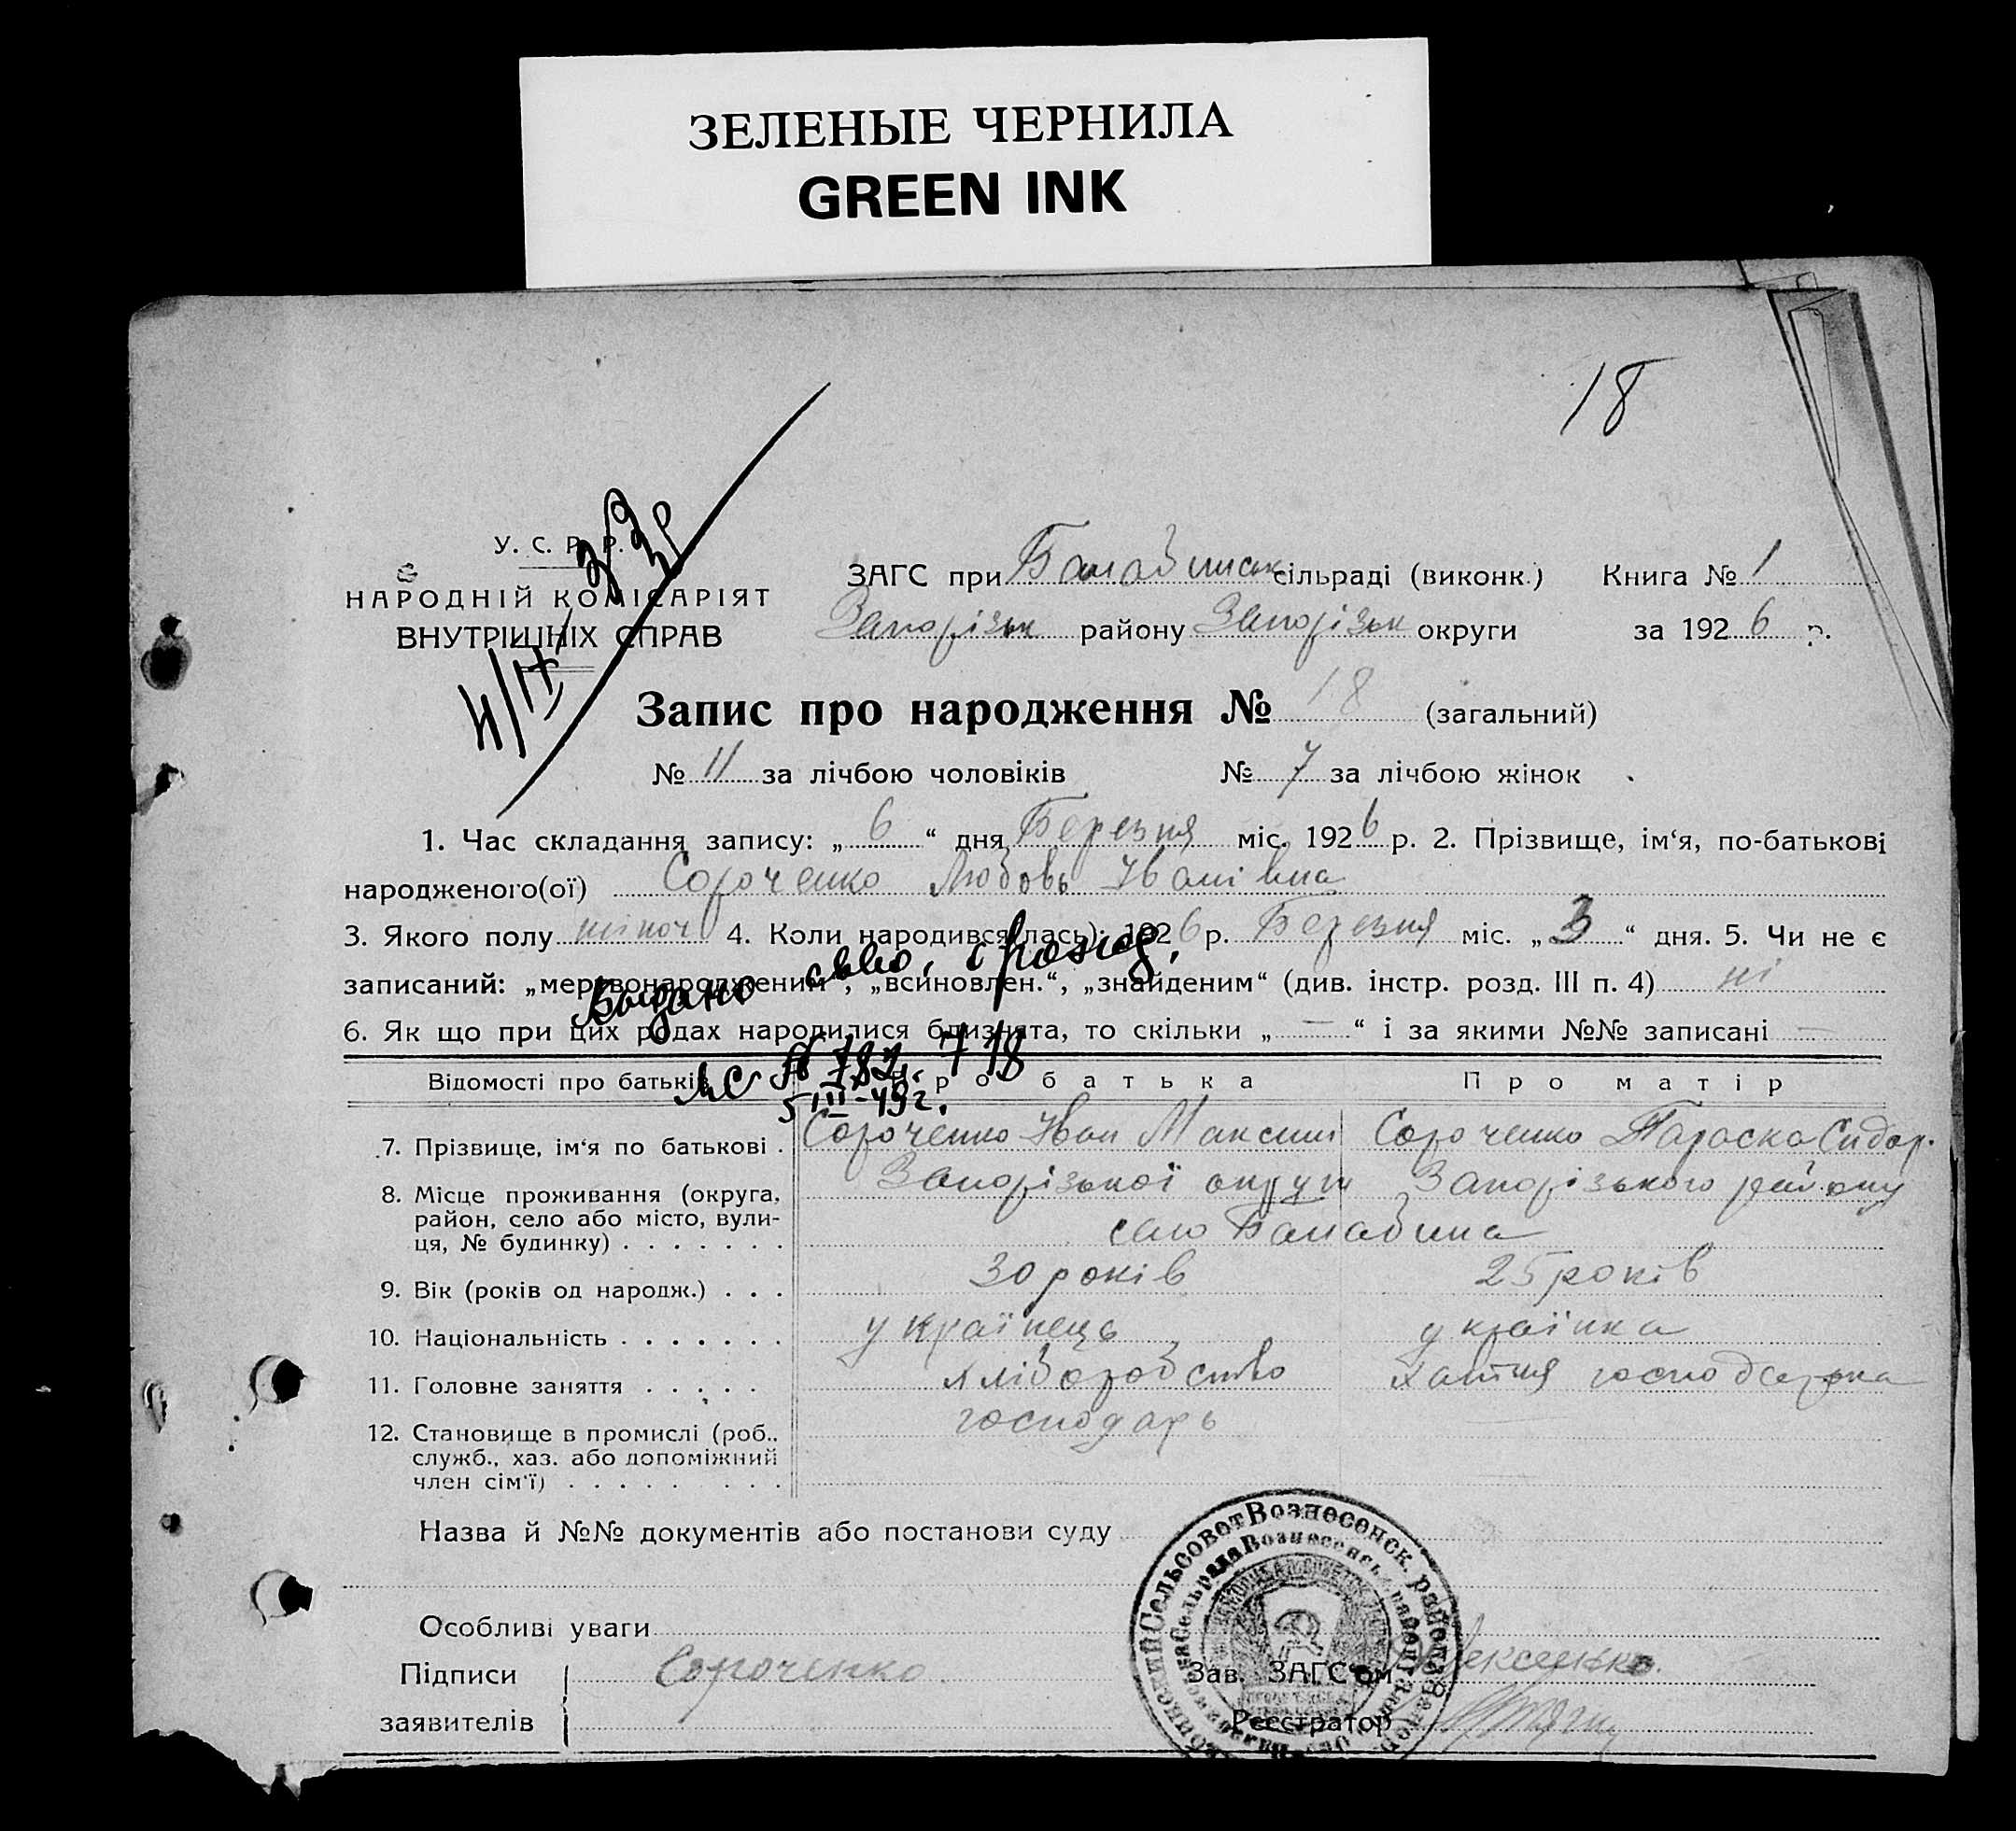 ЗЕЛЕНЫЕ ЧЕРНИЛА
GREEN INK
18
У. С. Р. Р.
НАРОДНІЙ КОМІСАРІЯТ
ВНУТРІШНІХ СПРАВ
ЗАГС при Балабинськ сільраді (виконк.) Книга № 1
Запорізьк району Запорізьк округи за 1926 р.
Запис про народження № 18 (загальний)
№ 11 за лічбою чоловіків № 7 за лічбою жінок
1. Час складання запису: „6“ дня Березня міс. 1926 р. 2. Прізвище, ім‘я, по-батькові
народженого(ої) Сороченко Любовь Іванівна
3. Якого полу жіноч 4. Коли народився(лась): 1926 р. Березня міс. „3“ дня. 5. Чи не є
записаний: „мертвонародженим“, „всиновлен.“, „знайденим“ (див. інстр. розд. III п. 4) ні
6. Як що при цих родах народилися близнята, то скільки „—“ і за якими №№ записані —
Выдано св-во о рожд.
5/III-49г.
Відомості про батьків Про батька Про матір
7. Прізвище, ім‘я по батькові . Сороченко Іван Максим Сороченко Параска Сидор.
8. Місце проживання (округа, Запорізької округи Запорізького району
район, село або місто, вули-
ця, № будинку) . . . . . . . село Балабина
9. Вік (років од народж.) . . . 30 років 25 років
10. Національність . . . . . . . українець українка
11. Головне заняття . . . . . хліборобство хатня господарка
12. Становище в промислі (роб., господарь
служб., хаз. або допоміжний
член сім‘ї) . . . . . . . . .
Назва й №№ документів або постанови суду
Особливі уваги
Підписи Сороченко Зав. ЗАГС‘ом
заявителів Реєстратор
Сельсовет Вознесенск. района